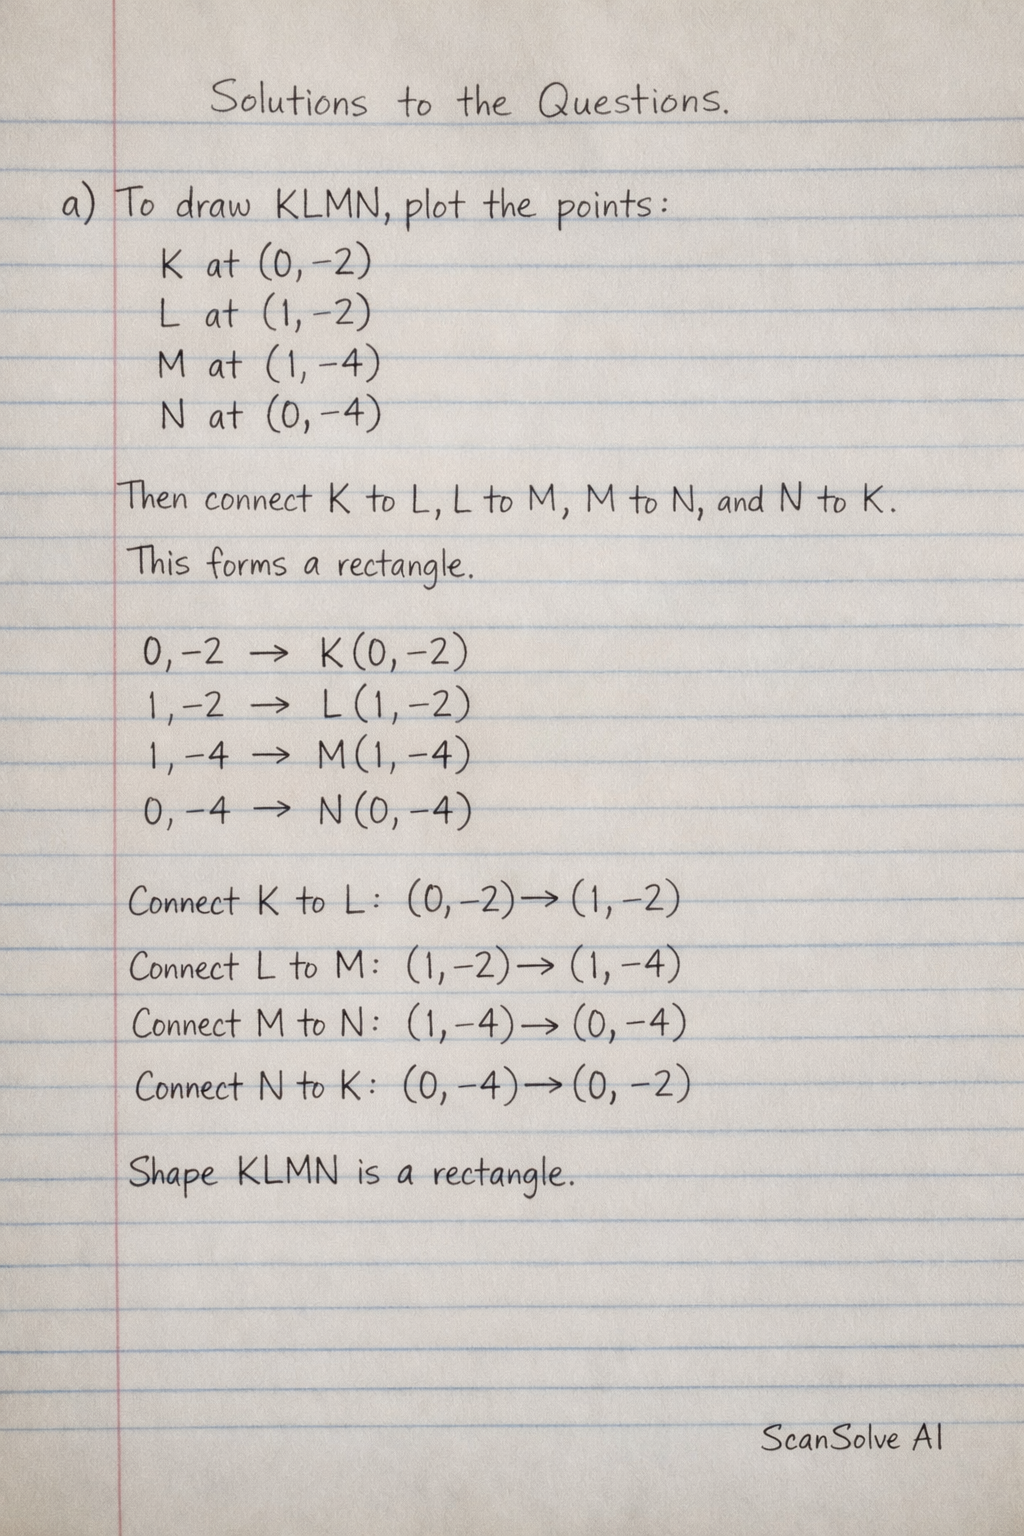 Solutions to the Questions.
a) To draw KLMN, plot the points:
K at (0,−2)
L at (1,−2)
M at (1,−4)
N at (0,−4)
Then connect K to L, L to M, M to N, and N to K.
This forms a rectangle.
0,−2 → K(0,−2)
1,−2 → L(1,−2)
1,−4 → M(1,−4)
0,−4 → N(0,−4)
Connect K to L: (0,−2)→(1,−2)
Connect L to M: (1,−2)→(1,−4)
Connect M to N: (1,−4)→(0,−4)
Connect N to K: (0,−4)→(0,−2)
Shape KLMN is a rectangle.
ScanSolve AI